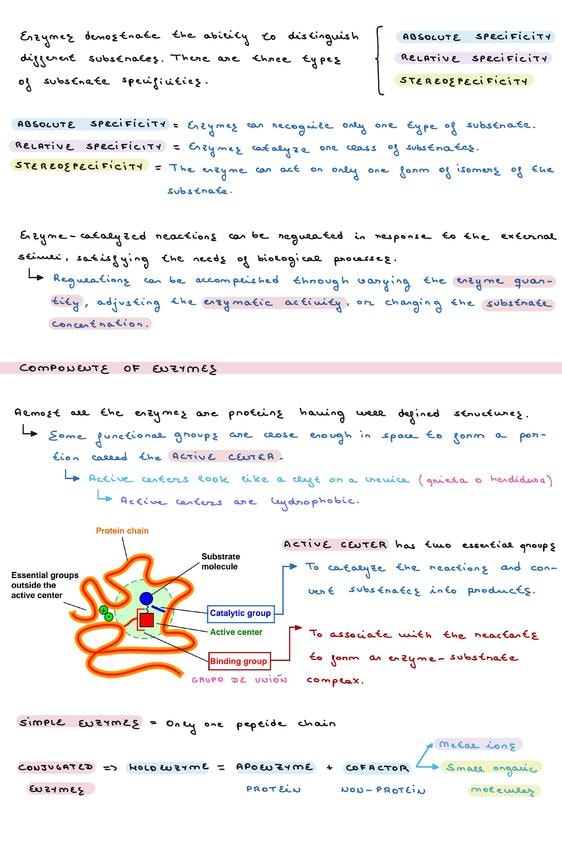 Enzymes demostrate the ability to distinguish
different substrates. There are three types
of substrate specificities.
ABSOLUTE SPECIFICITY
RELATIVE SPECIFICITY
STEREOSPECIFICITY
ABSOLUTE SPECIFICITY = Enzymes can recognize only one type of substrate.
RELATIVE SPECIFICITY = Enzymes catalyze one class of substrates.
STEREOSPECIFICITY = The enzyme can act on only one form of isomers of the
substrate.
Enzyme-catalyzed reactions can be regulated in response to the external
stimuli, satisfying the needs of biological processes.
Regulations can be accomplished through varying the enzyme quan-
tity, adjusting the enzymatic activity, or changing the substrate
concentration.
COMPONENTS OF ENZYMES
Almost all the enzymes are proteins having well defined structures.
Some functional groups are close enough in space to form a por-
tion called the ACTIVE CENTER.
Active centers look like a cleft or a crevice (grieta o hendidura)
Active centers are hydrophobic.
Protein chain
Substrate
molecule
Essential groups
outside the
active center
Catalytic group
Active center
Binding group
GRUPO DE UNIÓN
ACTIVE CENTER has two essential groups
To catalyze the reactions and con-
vert substrates into products.
To associate with the reactants
to form an enzyme-substrate
complex.
SIMPLE ENZYMES = Only one peptide chain
CONJUGATED => HOLOENZYME = APOENZYME + COFACTOR
ENZYMES
PROTEIN
NON-PROTEIN
Metal ions
Small organic
molecules